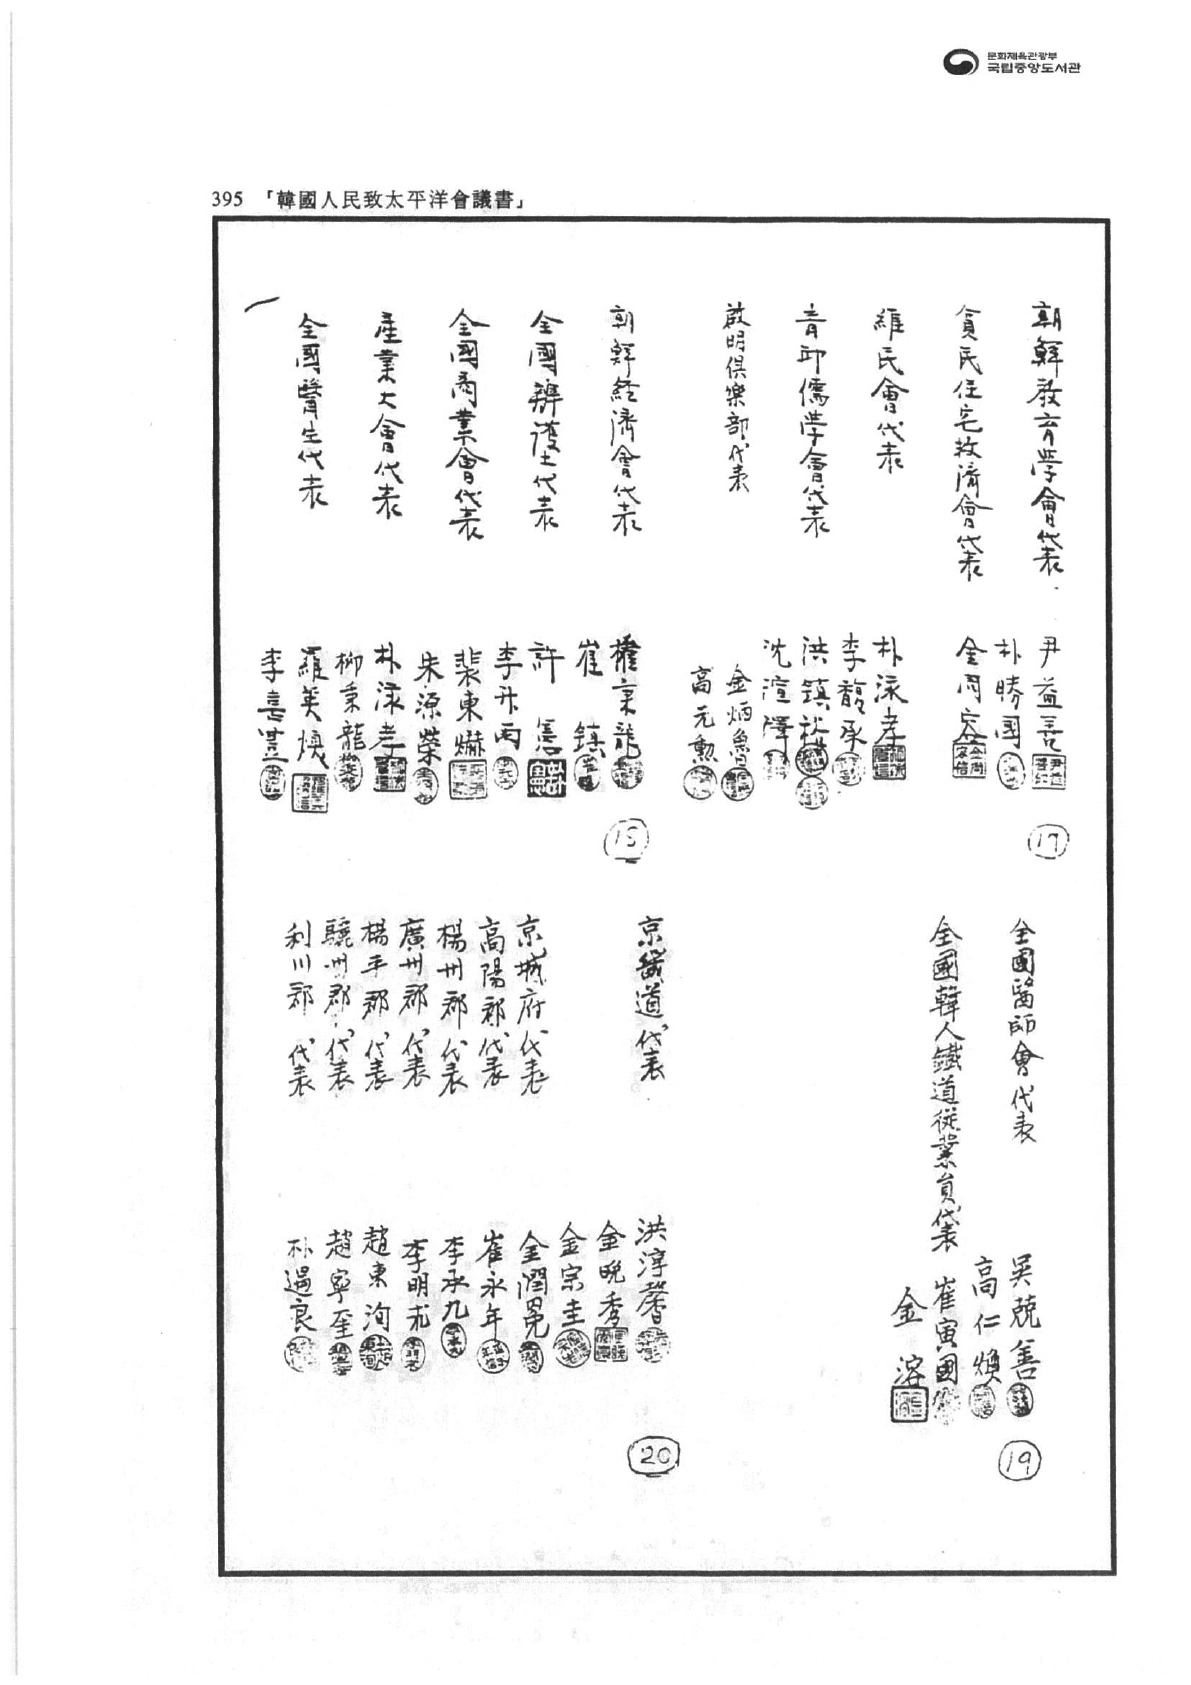 문화체육관광부
국립중앙도서관
395 「韓國人民致太平洋會議書」
朝鮮教育學會代表
尹益善
朴勝國
貧民住宅救濟會代表
金周容
維民會代表
朴泳孝
李馥承
青邱儒學會代表
洪鎮裕
沈瀅澤
啟明俱樂部代表
金炳魯
高元勲
17
朝鮮経濟會代表
權秉龍
崔鎮
全國辨護士代表
許憲
李升雨
全國商業會代表
裴東爀
朱源榮
產業大會代表
朴泳孝
柳秉龍
全國醫生代表
羅英煥
李喜豊
18
全國醫師會代表
吳兢善
高仁煥
全國韓人鐵道從業員代表
崔寅國
金溶
19
京畿道代表
洪淳馨
金晩秀
金宗圭
京城府代表
全潤冕
高陽郡代表
崔永年
楊州郡代表
李承九
廣州郡代表
李明求
楊平郡代表
趙東洵
驪州郡代表
趙寧奎
利川郡代表
朴遇良
20